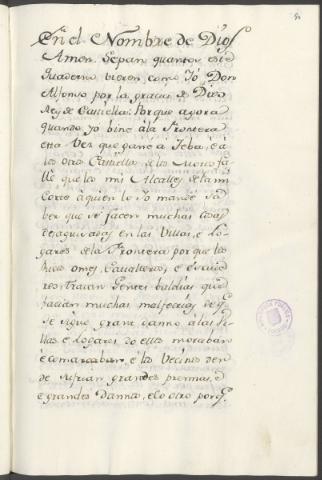 En el Nombre de Dios
Amen. Sepan quantos este
Quaderno vieren, como Yo Don
Alfonso por la gracia de Dios
Rey de Castiella: Porque agora
quando yo bine ála Frontera
esta Vez que gané á Teba, é a
los otros Castiellos de los Moros fa-
llé que los mis Alcalles de la mi
Corte á quien lo Yo mandé sa-
ber que se facen muchas cosas
desaguisadas en las Villas, é Lo-
gares de la Frontera por que los
Ricos omes, Cavalleros, e Escude-
ros traien Gentes baldias que
facian muchas malfetrias, de q.e
se sigue grant danno á las Vi-
llas é Logares do ellos moraban
é comarcaban, é los Vecinos den-
de sufrian grandes premias, é
e grandes Dannos, é lo otro porq.e